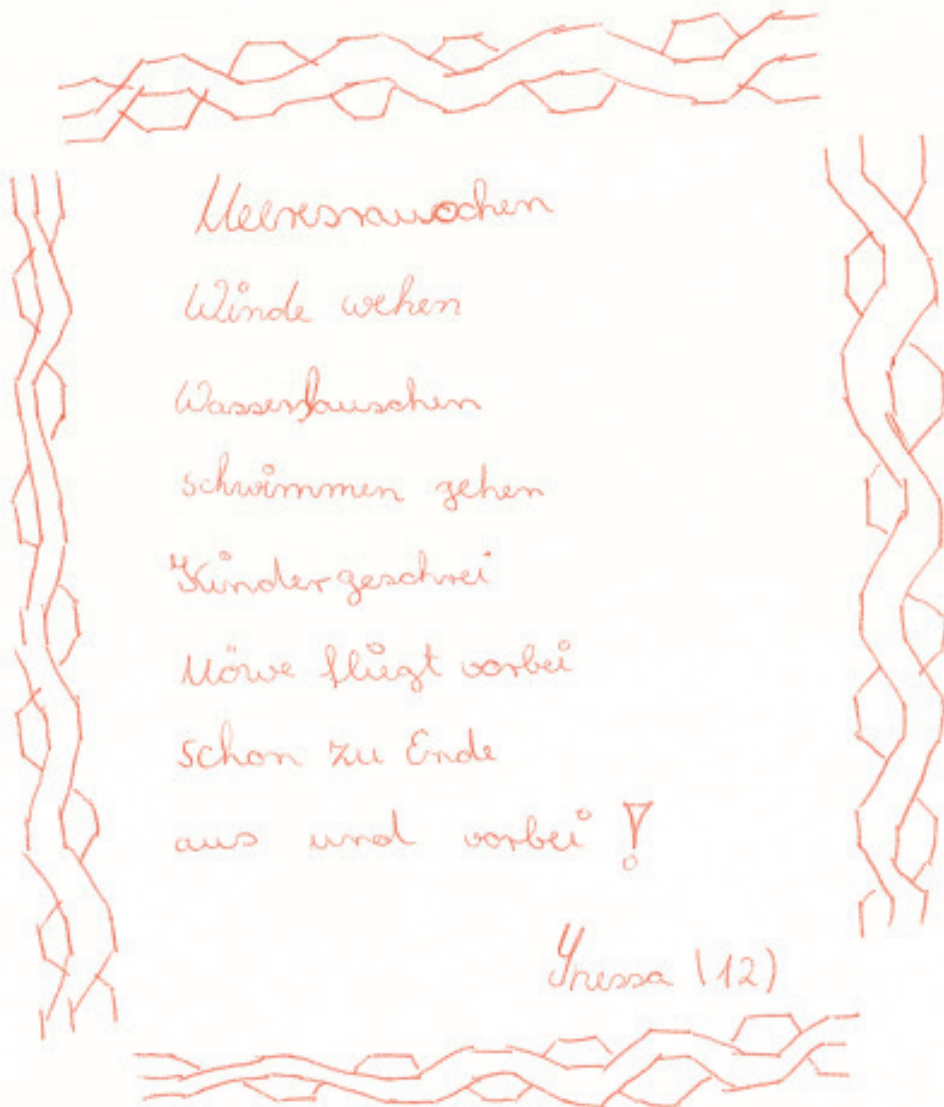 Meeresrauschen
Winde wehen
Wasserlauschen
schwimmen gehen
Kindergeschrei
Möwe fliegt vorbei
schon zu Ende
aus und vorbei!
(12)